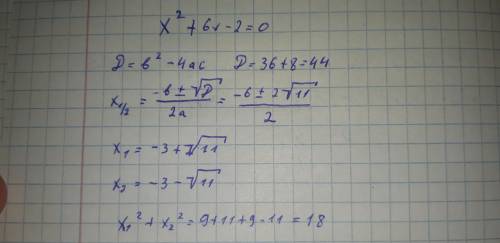 x² + 6x - 2 = 0
D = b² - 4ac D = 36 + 8 = 44
x₁/₂ = (-b ± √D)/2a = (-6 ± 2√11)/2
x₁ = -3 + √11
x₂ = -3 - √11
x₁² + x₂² = 9 + 11 + 9 - 11 = 18